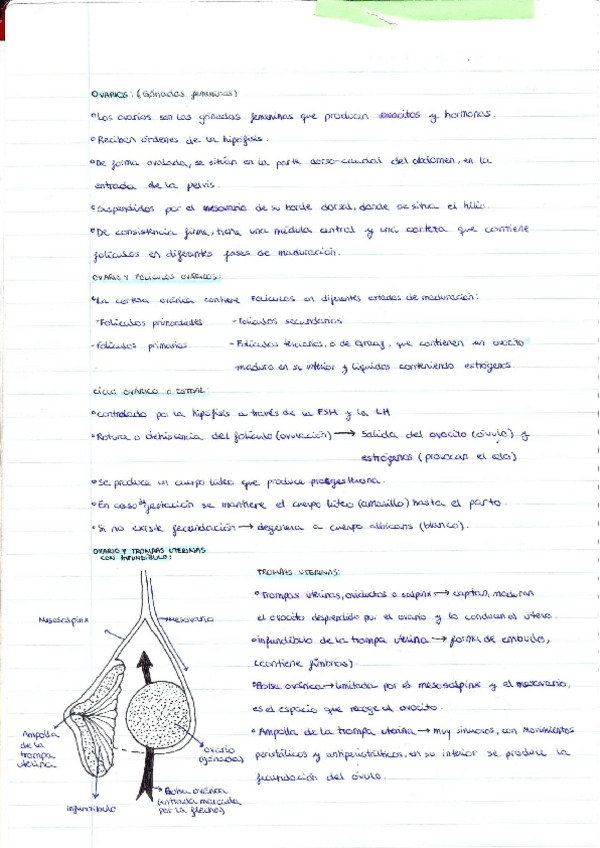 OVARIOS: (Gónadas femeninas)
• Los ovarios son las gónadas femeninas que producen ovocitos y hormonas.
• Reciben órdenes de la hipófisis.
• De forma ovalada, se sitúan en la parte dorso-caudal del abdomen, en la
entrada de la pelvis.
• Suspendidos por el mesovario de su borde dorsal, donde se situa el hilio.
• De consistencia firme, tiene una médula central y una corteza que contiene
folículos en diferentes fases de maduración.
OVARIO Y FOLICULOS OVÁRICOS:
• La corteza ovárica contiene Folículos en diferentes estados de maduración:
- Folículos primordiales - Folículos secundarios
- Folículos primarios - Folículos terciarios, o de Graaf, que contienen un ovocito
maduro en su interior y líquidos conteniendo estrógenos.
CICLO OVÁRICO o ESTRAL:
• Controlado por la hipófisis a través de la FSH y la LH
• Rotura o dehiscencia del folículo (ovulación) → Salida del ovocito (óvulo) y
estrógenos (provocan el celo).
• Se produce un cuerpo lúteo que produce progesterona.
• En caso de gestación se mantiene el cuerpo lúteo (amarillo) hasta el parto.
• Si no existe fecundación → degenera a cuerpo albicans (blanco).
OVARIO Y TROMPAS UTERINAS
CON INFUNDIBULO:
Mesosalpinx
Mesovario
Ampolla
de la
trompa
uterina
Infundibulo
Ovario
(gónada)
Bolsa ovárica
(entrada marcada
por la flecha)
TROMPAS UTERINAS:
• Trompas uterinas, oviductos o salpinx → captan, maduran
el ovocito desprendido por el ovario y lo conducen al utero.
• Infundíbulo de la trompa uterina → forma de embudo,
(contiene fimbrias)
• Bolsa ovárica → limitada por el mesosalpinx y el mesovario,
es el espacio que recoge el ovocito.
• Ampolla de la trompa uterina → muy sinuosos, con movimientos
peristálticos y antiperistálticos, en su interior se produce la
fecundación del óvulo.